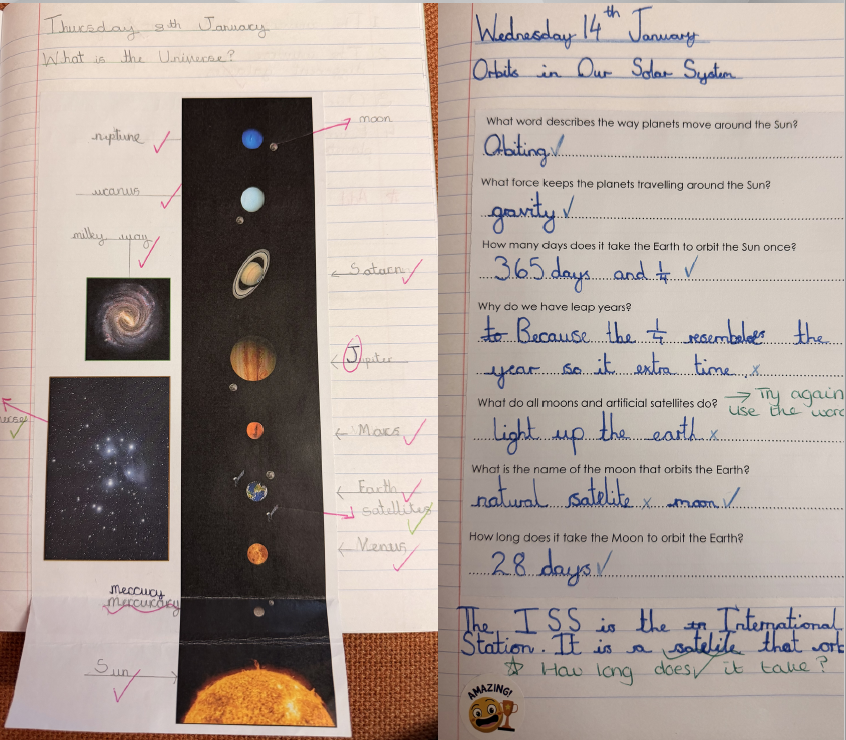 Thursday 8th January
What is the Universe?
moon
neptune
uranus
milky way
Saturn
Jupiter
Mars
Earth
satellites
Venus
mercury
mercurary
Sun
Wednesday 14th January
Orbits in Our Solar System
What word describes the way planets move around the Sun?
Orbiting
What force keeps the planets travelling around the Sun?
gravity
How many days does it take the Earth to orbit the Sun once?
365 days and 1/4
Why do we have leap years?
to Because the 1/4 the
year so it extra time
What do all moons and artificial satellites do? → Try again
use the
light up the earth
What is the name of the moon that orbits the Earth?
natural satelite moon
How long does it take the Moon to orbit the Earth?
28 days
The ISS is the International
Station. It is a satelite that
How long does it take?
AMAZING!